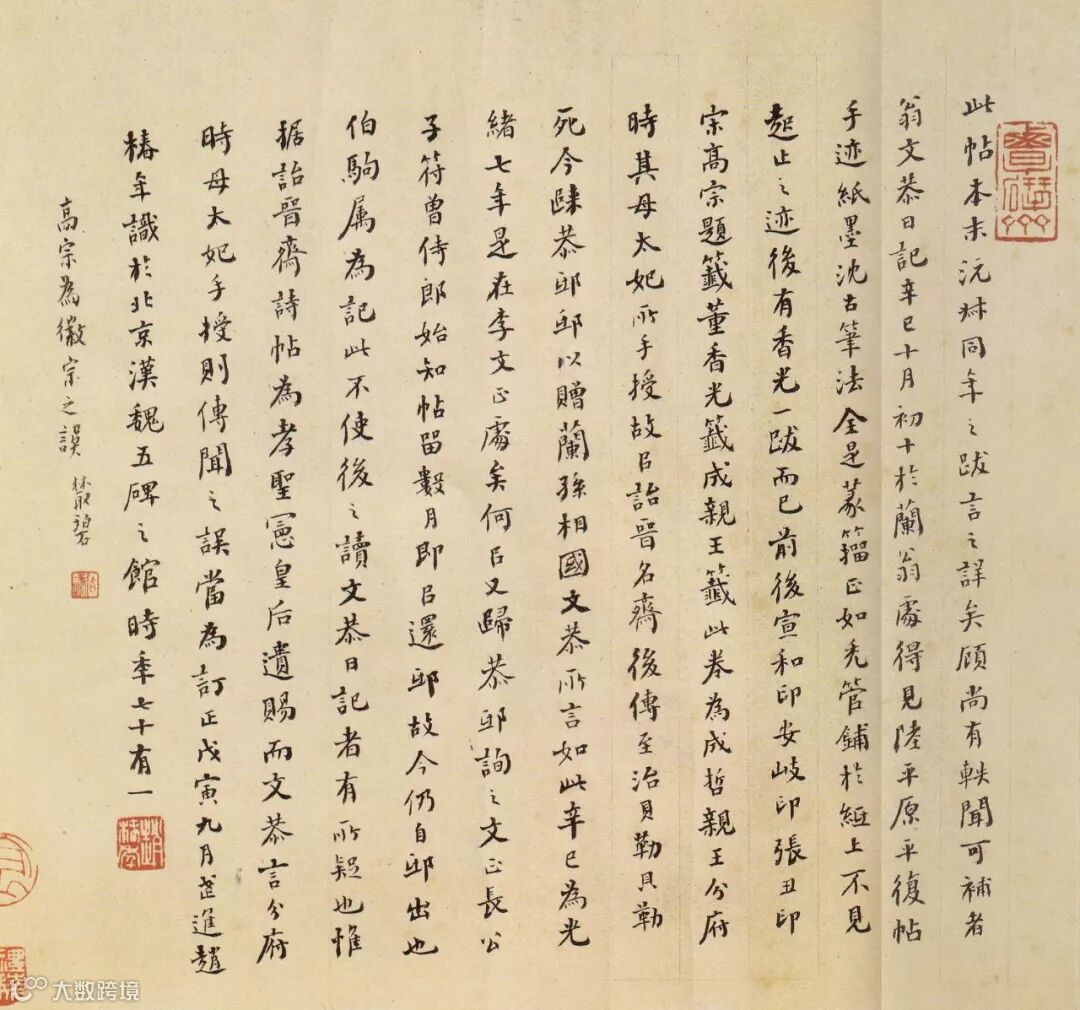 此帖本末沅叔同年之跋言之詳矣顧尚有軼聞可補者
翁文恭日記辛巳十月初十於蘭翁處得見陸平原平復帖
手迹紙墨沈古筆法全是篆籀正如禿管鋪於紙上不見
起止之迹後有香光一跋而已前後宣和印安岐印張丑印
宗高宗題籤董香光籤成親王籤此卷為成哲親王分府
時其母太妃所手授故以詒晉名齋後傳至治貝勒貝勒
死今歸恭邸邸以贈蘭孫相國文恭所言如此辛巳為光
緒七年是在李文正處矣何以又歸恭邸詢之文正長公
子符曾侍郎始知帖留數月即以還邸故今仍自邸出也
伯駒属為記此不使後之讀文恭日記者有所疑也惟
据詒晉齋詩帖為孝聖憲皇后遺賜而文恭言分府
時母太妃手授則傳聞之誤當為訂正戊寅九月武進趙
椿年識於北京漢魏五碑之館時年七十有一
高宗為徽宗之誤
大数跨境